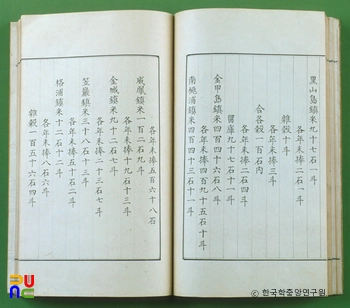 黑山島鎭米九十七石一斗
各年未捧二石一斗
雜穀十斗
各年未捧三斗
合各穀一百石內
各年未捧二石四斗
醫庫九十七石十一斗
金甲島鎭米四百四石二斗
各年未捧四百九十五石十斗
南桃浦鎭米四百四十三石十一斗
各年未捧五百六十八石
威鳳鎭米一百九石八斗
各年未捧十九石十三斗
金城鎭米九十二石七斗
各年未捧二十三石七斗
笠巖鎭米三十八石十三斗
各年未捧五十石二斗
格浦鎭米十二石十二斗
各年未捧八石六斗
雜穀一百五十六石四斗
© 한국학중앙연구원